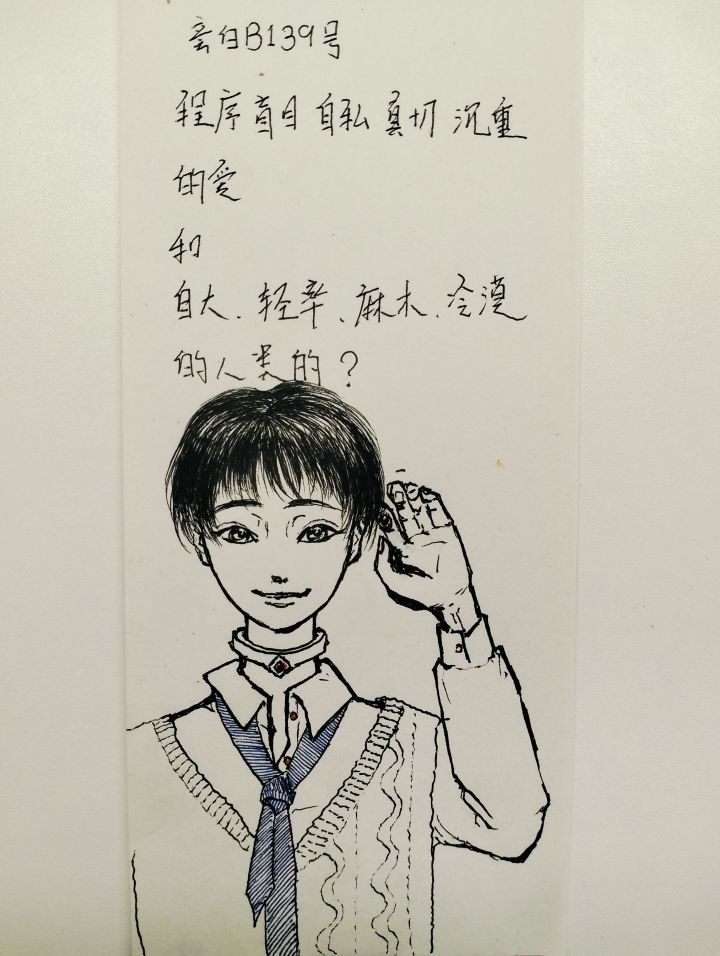 白B139号
程序盲目自私真切沉重
的爱
和
自大、轻率、麻木、冷漠
的人类的？